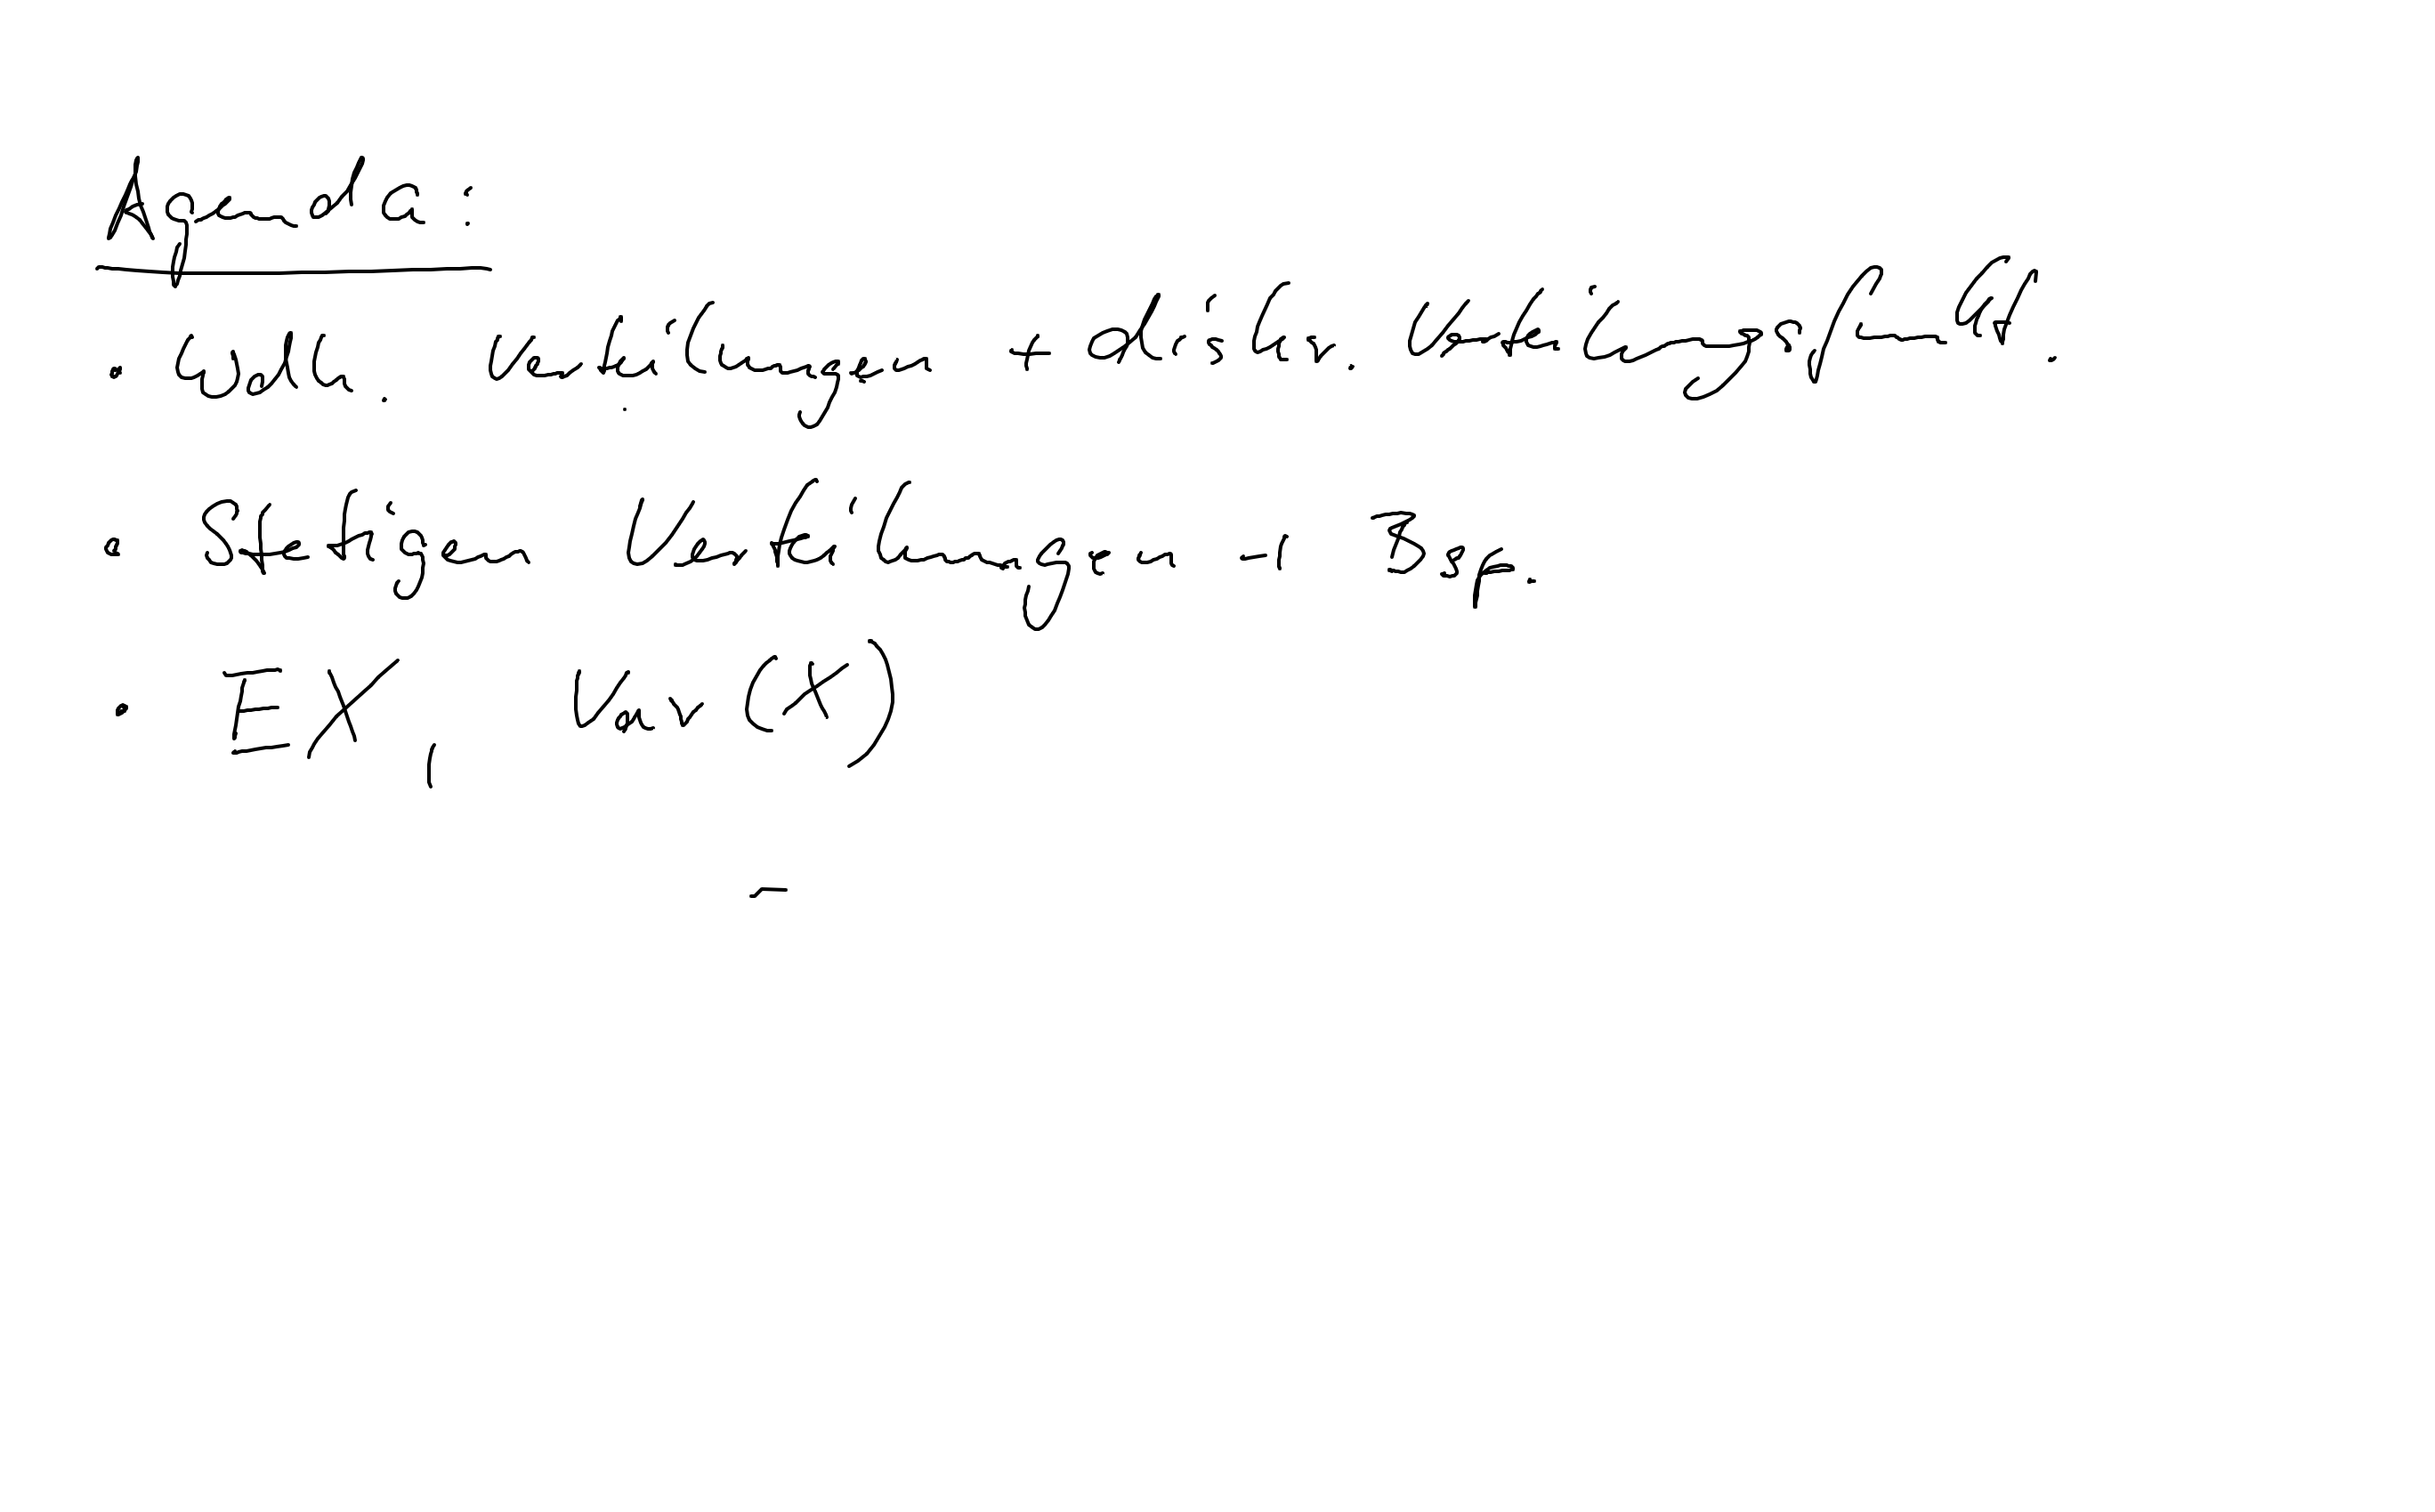 Agenda:
• Wdh. Verteilungen + diskr. Verteilungsfunkt.
• Stetigen Verteilungen + Bsp.
• EX, Var(X)
-